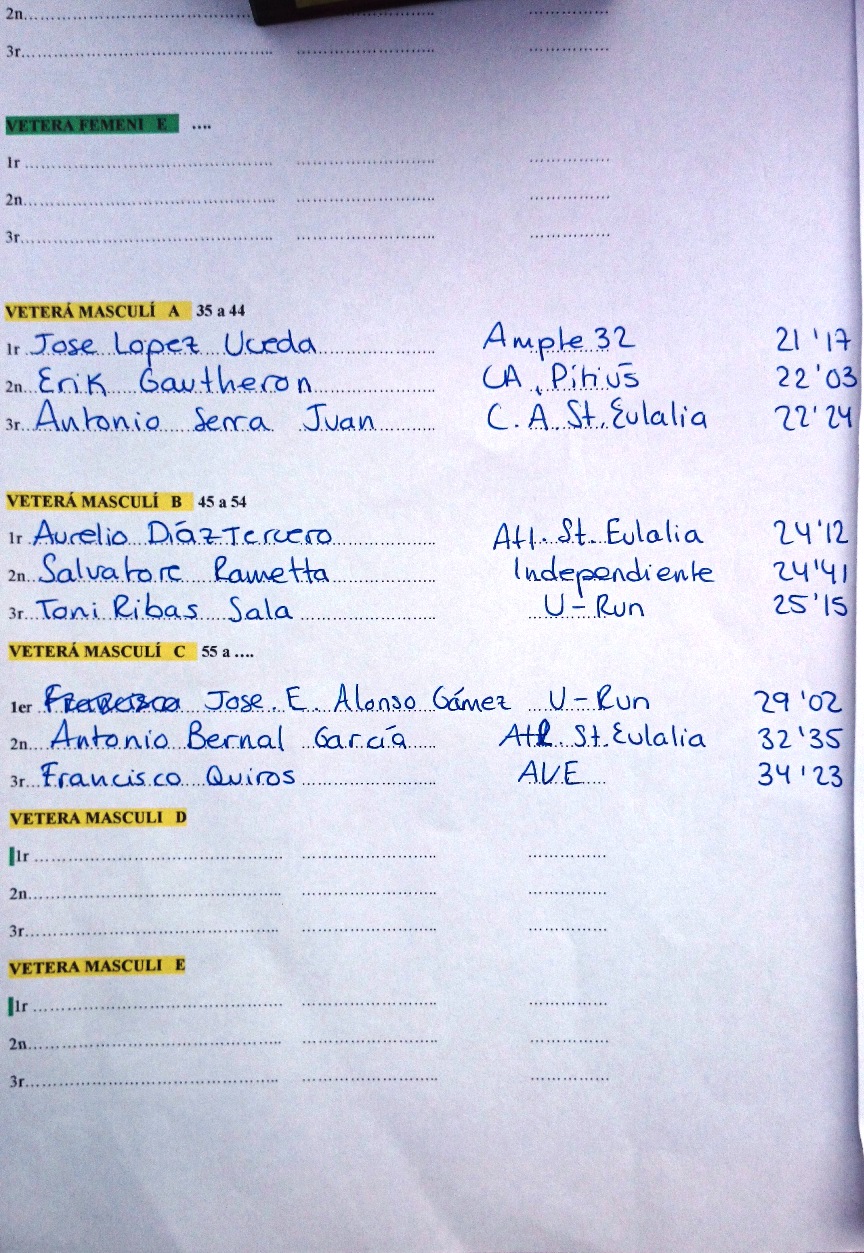 2n
3r
VETERA FEMENI E ....
1r
2n
3r
VETERÁ MASCULÍ A 35 a 44
1r Jose Lopez Uceda Ample 32 21'17
2n Erik Gautheron CA Pitiüs 22'03
3r Antonio Serra Juan C. A. St. Eulalia 22'24
VETERÁ MASCULÍ B 45 a 54
1r Aurelio Díaz Tercero Atl. St. Eulalia 24'12
2n Salvatore Rametta Independiente 24'41
3r Toni Ribas Sala U-Run 25'15
VETERÁ MASCULÍ C 55 a ....
1er Jose E. Alonso Gámez U-Run 29'02
2n Antonio Bernal García Atl. St. Eulalia 32'35
3r Francisco Quiros AVE 34'23
VETERA MASCULI D
1r
2n
3r
VETERA MASCULI E
1r
2n
3r